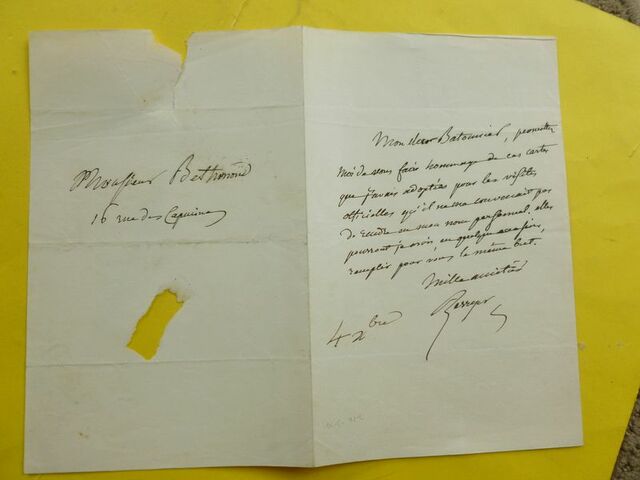 Monsieur Bethmont
16 rue des Capucines
Mon cher Batonnier, permettez
moi de vous faire hommage de ces cartes
que j'avais adoptées pour les visites
officielles qu'il ne me convenait pas
de rendre en mon nom personnel. elles
pourront je crois, en quelque occasion,
remplir pour vous le même but.
Mille amitiés
Berryer
4 xbre